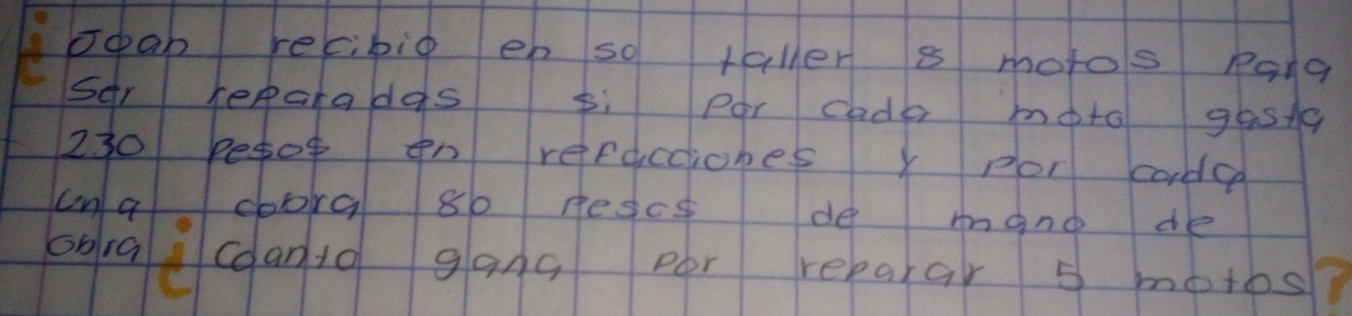 ¿Joan recibio en so taller 8 motos para
ser reparadas si por cada moto gasta
230 pesos en refacciones y por cada
una cobra 80 pesos de mano de
obra ¿coanto gana por reparar 5 motos?